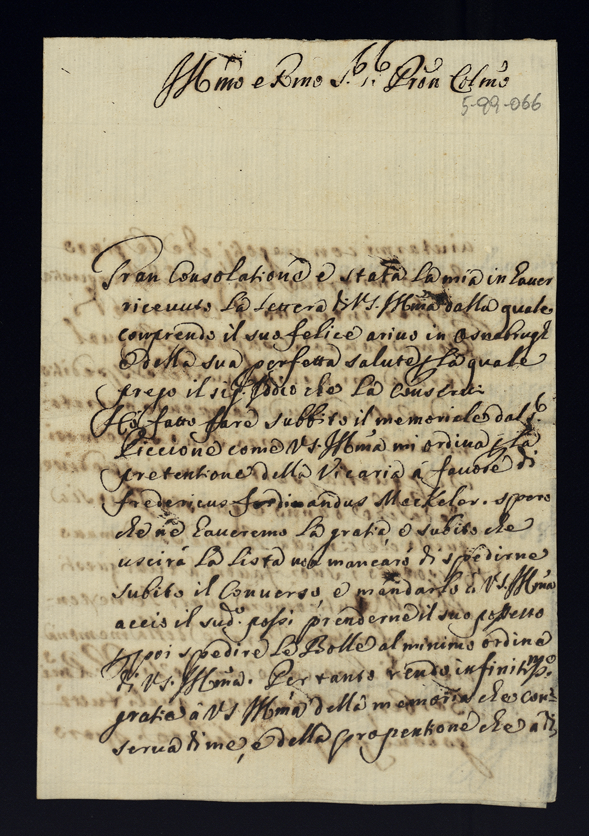 Illmo e Rmo Sr. Pron Colmo
5-99-066
Gran Consolatione è stata la mia in haver
ricevuto la lettera di V.S. Illma dalla quale
comprendo il suo felice arivo in Osnabrugh
e della sua perfetta salute, la quale
prego il sig. Iddio che la conservi.
Hò fatto fare subbito il memoriale dal S.
Piccione come V.S. Illma mi ordina, p. la
pretentione della Vicaria à favore di
fredericus ferdinandus Meckeler. spero
che ne haveremo la gratia, e subito che
uscirà la lista non mancarò di spedirne
subito il Converso, e mandarlo à V.S. Illma
acciò il sud.o possi prenderne il suo possesso
e poi spedire le Bolle al minimo ordine
di V.S. Illma. Per tanto rendo infinitme
gratie à V.S. Illma della memoria che con:
serva di me, e della propentione che